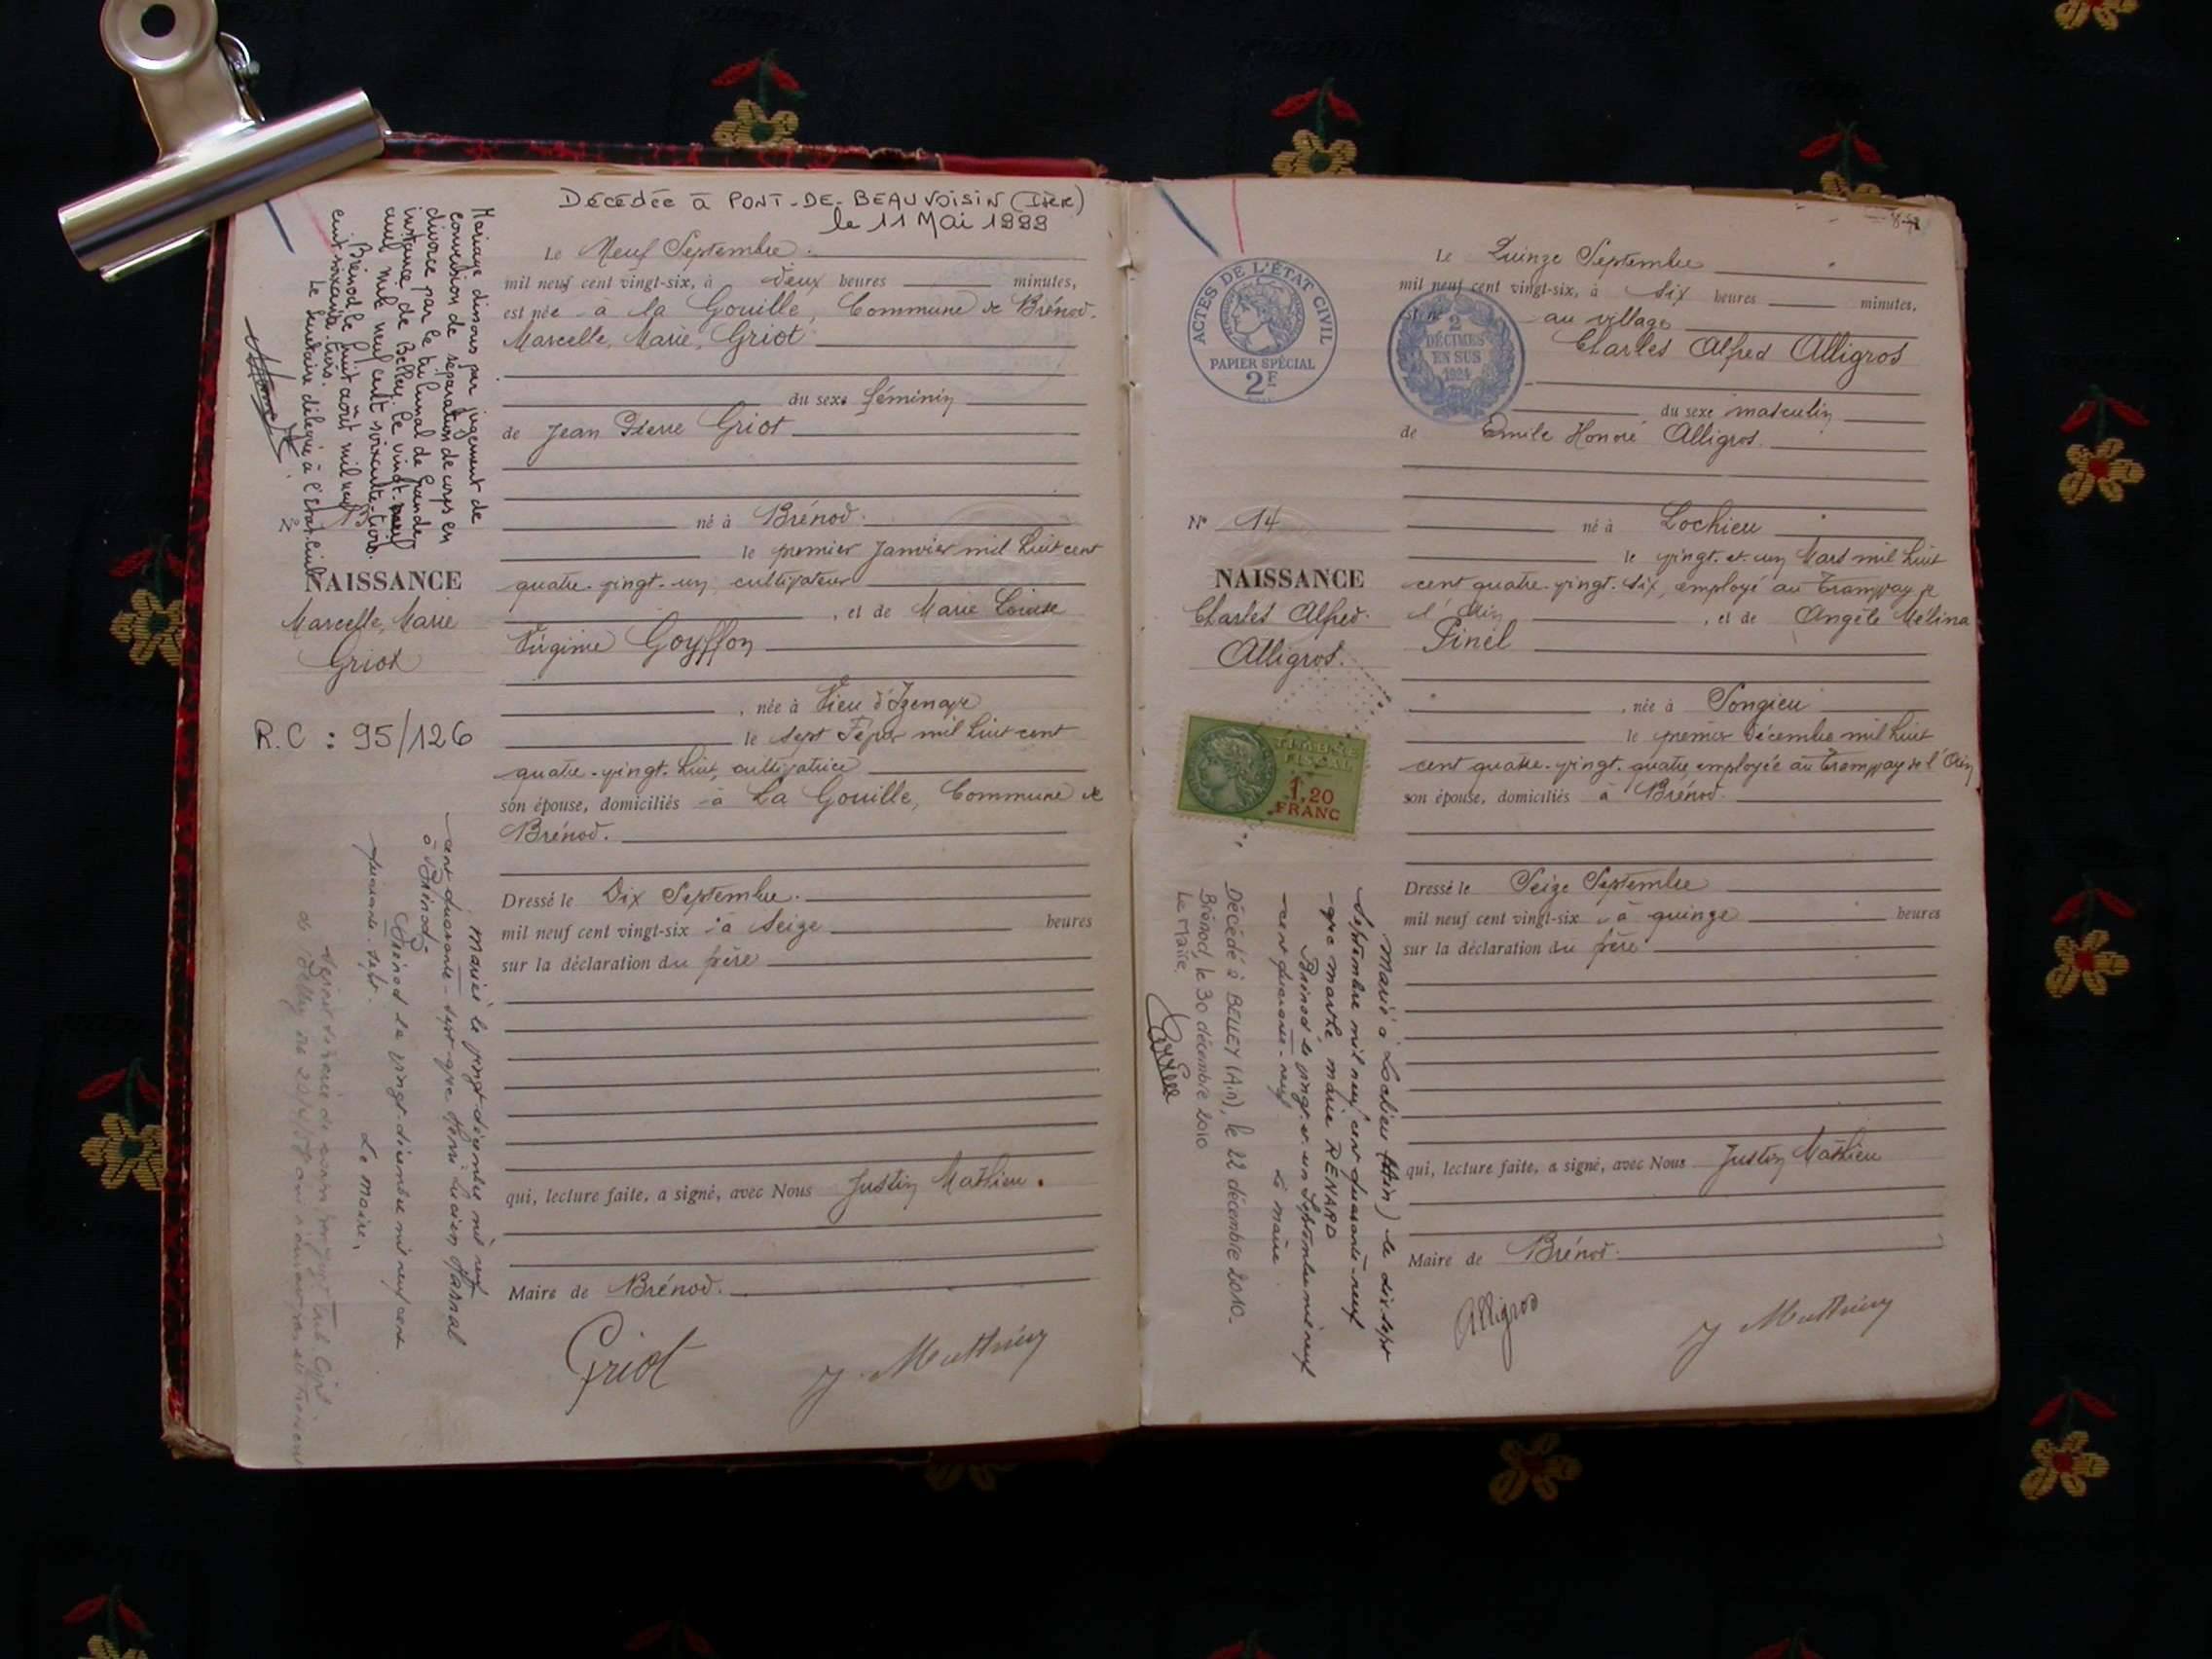 Décédée à PONT-DE-BEAUVOISIN (Isère)
le 11 Mai 1999
Mariage dissous par jugement de
conversion de séparation de corps en
divorce par le tribunal de grande
instance de Belley le vingt-
avril mil neuf cent soixante-trois.
Brénod le huit août mil neuf
cent soixante-trois.
Le Secrétaire délégué à l'état-civil
Le Neuf Septembre
mil neuf cent vingt-six, à deux heures minutes,
est née à la Gouille, Commune de Brénod.
Marcelle, Marie, Griot
du sexe féminin
de Jean Pierre Griot
né à Brénod
le premier Janvier mil huit cent
quatre-vingt-un, cultivateur
, et de Marie Louise
Virginie Goyffon
, née à Vieu d'Izenave
le sept Février mil huit cent
quatre-vingt-huit, cultivatrice
son épouse, domiciliés à La Gouille, Commune de
Brénod.
Dressé le Dix Septembre
mil neuf cent vingt-six à seize heures
sur la déclaration du père
qui, lecture faite, a signé, avec Nous Justin Mathieu.
Maire de Brénod.
Griot
J. Mathieu
N° 13
NAISSANCE
Marcelle, Marie
Griot
R.C : 95/126
Mariée le vingt décembre mil neuf
cent quarante-sept avec Henri Lucien
à Brénod
Brénod le vingt décembre mil neuf cent
quarante-sept.
Le maire,
ACTES DE L'ÉTAT CIVIL
PAPIER SPÉCIAL
2F
2
DÉCIMES
EN SUS
1924
Le Quinze Septembre
mil neuf cent vingt-six, à six heures minutes,
est né au village
Charles Alfred Alligros
du sexe masculin
de Emile Honoré Alligros
né à Lochieu
le vingt-et-un Mars mil huit
cent quatre-vingt-six, employé au Tramway de
l'Ain , et de Angèle Mélina
Pinel
, née à Songieu
le premier Décembre mil huit
cent quatre-vingt-quatre, employée au Tramway de l'Ain
son épouse, domiciliés à Brénod.
Dressé le Seize Septembre
mil neuf cent vingt-six à quinze heures
sur la déclaration du père
qui, lecture faite, a signé, avec Nous Justin Mathieu
Maire de Brénod.
Alligros
J Mathieu
N° 14
NAISSANCE
Charles Alfred
Alligros.
TIMBRE
FISCAL
1,20
FRANC
Marié à Lochieu (Ain) le dix sept
septembre mil neuf cent quarante-neuf
avec Marthe Marie RENARD
Brénod le vingt et un Septembre mil neuf
cent quarante-neuf Le maire
Décédé à BELLEY (Ain), le 22 décembre 2010.
Brénod, le 30 décembre 2010
Le Maire.